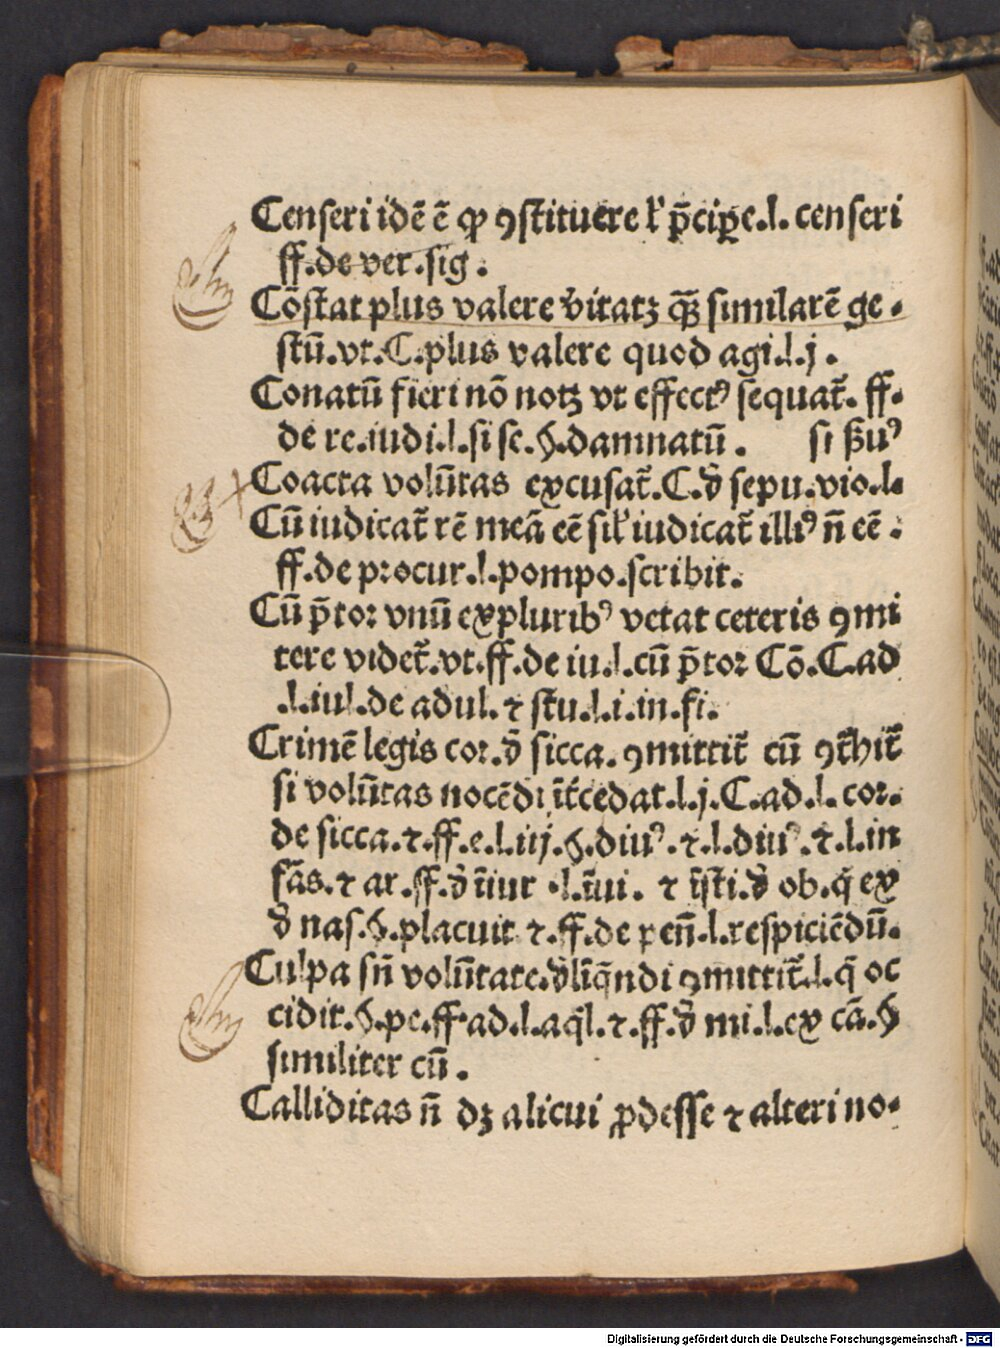 Censeri idē ē ꝙ ꝯstituere ł p̄ciꝑe.l. censeri
ff.de ver.sig.
Cōstat plus valere v̄itatꝫ qꝫ̄ similarē ge-
stū.vt.C.plus valere quod agi.l.j.
Conatū fieri nō notꝫ vt effectꝰ sequat̄. ff.
de re.iudi.l.si se.§.damnatū. si ẞuꝰ
Coacta volūtas excusat̄.C.d̄ sepu.vio.l.
Cū iudicat̄ rē meā eē sił iudicat̄ illiꝰ n̄ eē.
ff.de procur.l.pompo.scribit.
Cū p̄tor vnū ex pluribꝰ vetat ceteris ꝯmi
tere videt̄.vt.ff.de iu.l.cū p̄tor Cō.C.ad
.l.iul.de adul. ⁊ stu.l.i.in.fi.
Crimē legis cor.d̄ sicca. ꝯmittit̄ cū ꝯt̄hit̄
si volūtas nocēdi īt̄cedat.l.j.C.ad.l. cor.
de sicca.⁊.ff.e.l.iij.§.diuꝰ.⁊.l.diuꝰ.⁊.l.in
fās.⁊ ar.ff.d̄ īiur .l.īui. ⁊ īsti.d̄ ob.q̄ ex
d̄ nas.§.placuit ⁊.ff.de pen̄.l.respiciēdū.
Culpa sn̄ volūtate.d̄līq̄ndi ꝯmittit̄.l.q̄ oc
cidit.§.pe.ff.ad.l.aq̄l.⁊.ff.d̄ mi.l.ex cā.§
similiter cū.
Calliditas n̄ dꝫ alicui ꝓdesse ⁊ alteri no-
Digitalisierung gefördert durch die Deutsche Forschungsgemeinschaft - DFG